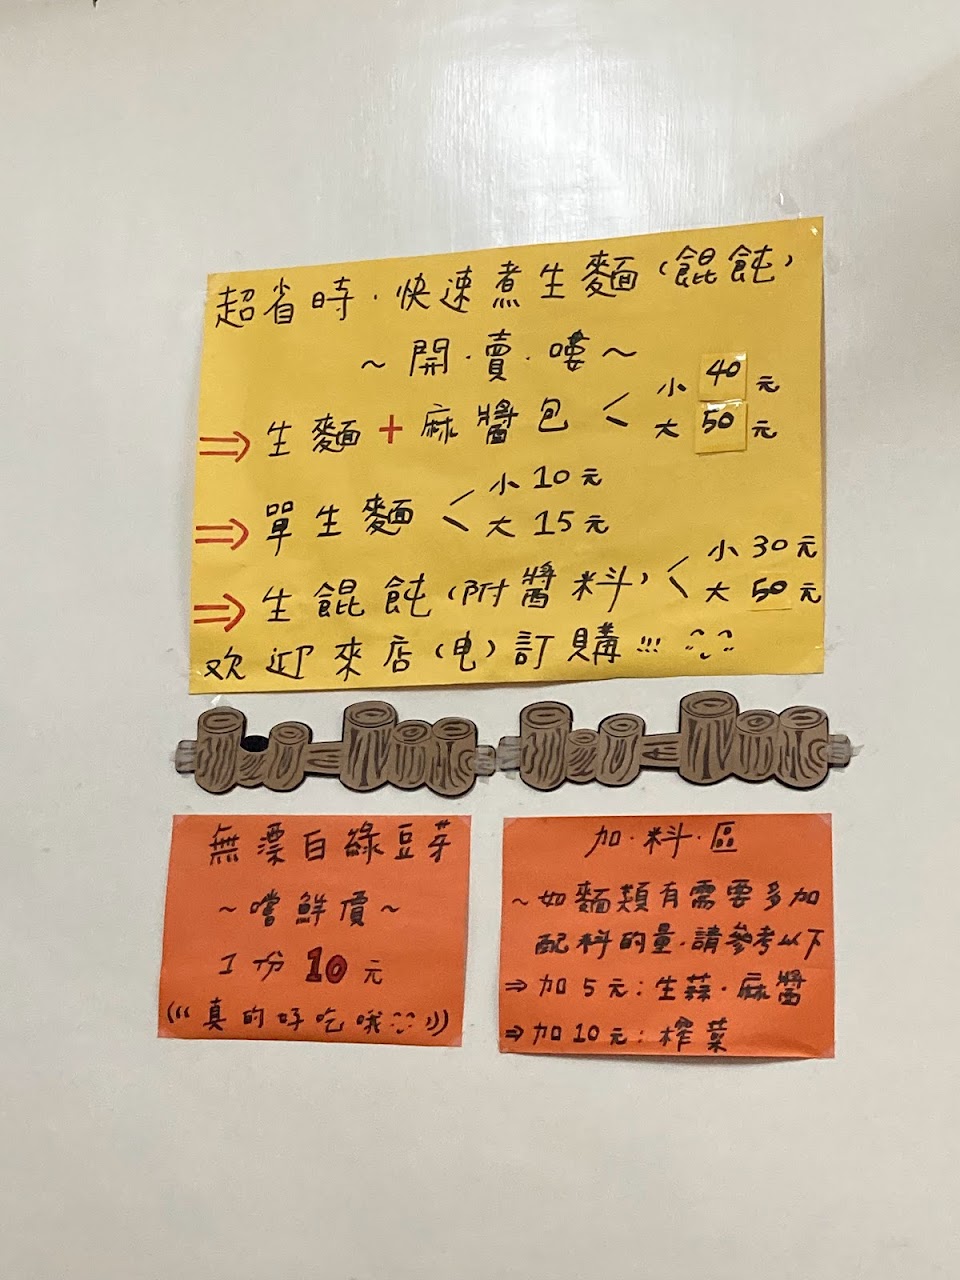 超省時·快速煮生麵(餛飩)
~開·賣·嘍~
⇒生麵+麻醬包<小40元
大50元
⇒單生麵<小10元
大15元
⇒生餛飩(附醬料)<小30元
大50元
欢迎來店(电)訂購!!!
無漂白綠豆芽
~嚐鮮價~
1份10元
(((真的好吃哦)))
加·料·區
~如麵類有需要多加
配料的量,請參考以下
⇒加5元:生蒜·麻醬
⇒加10元:榨菜